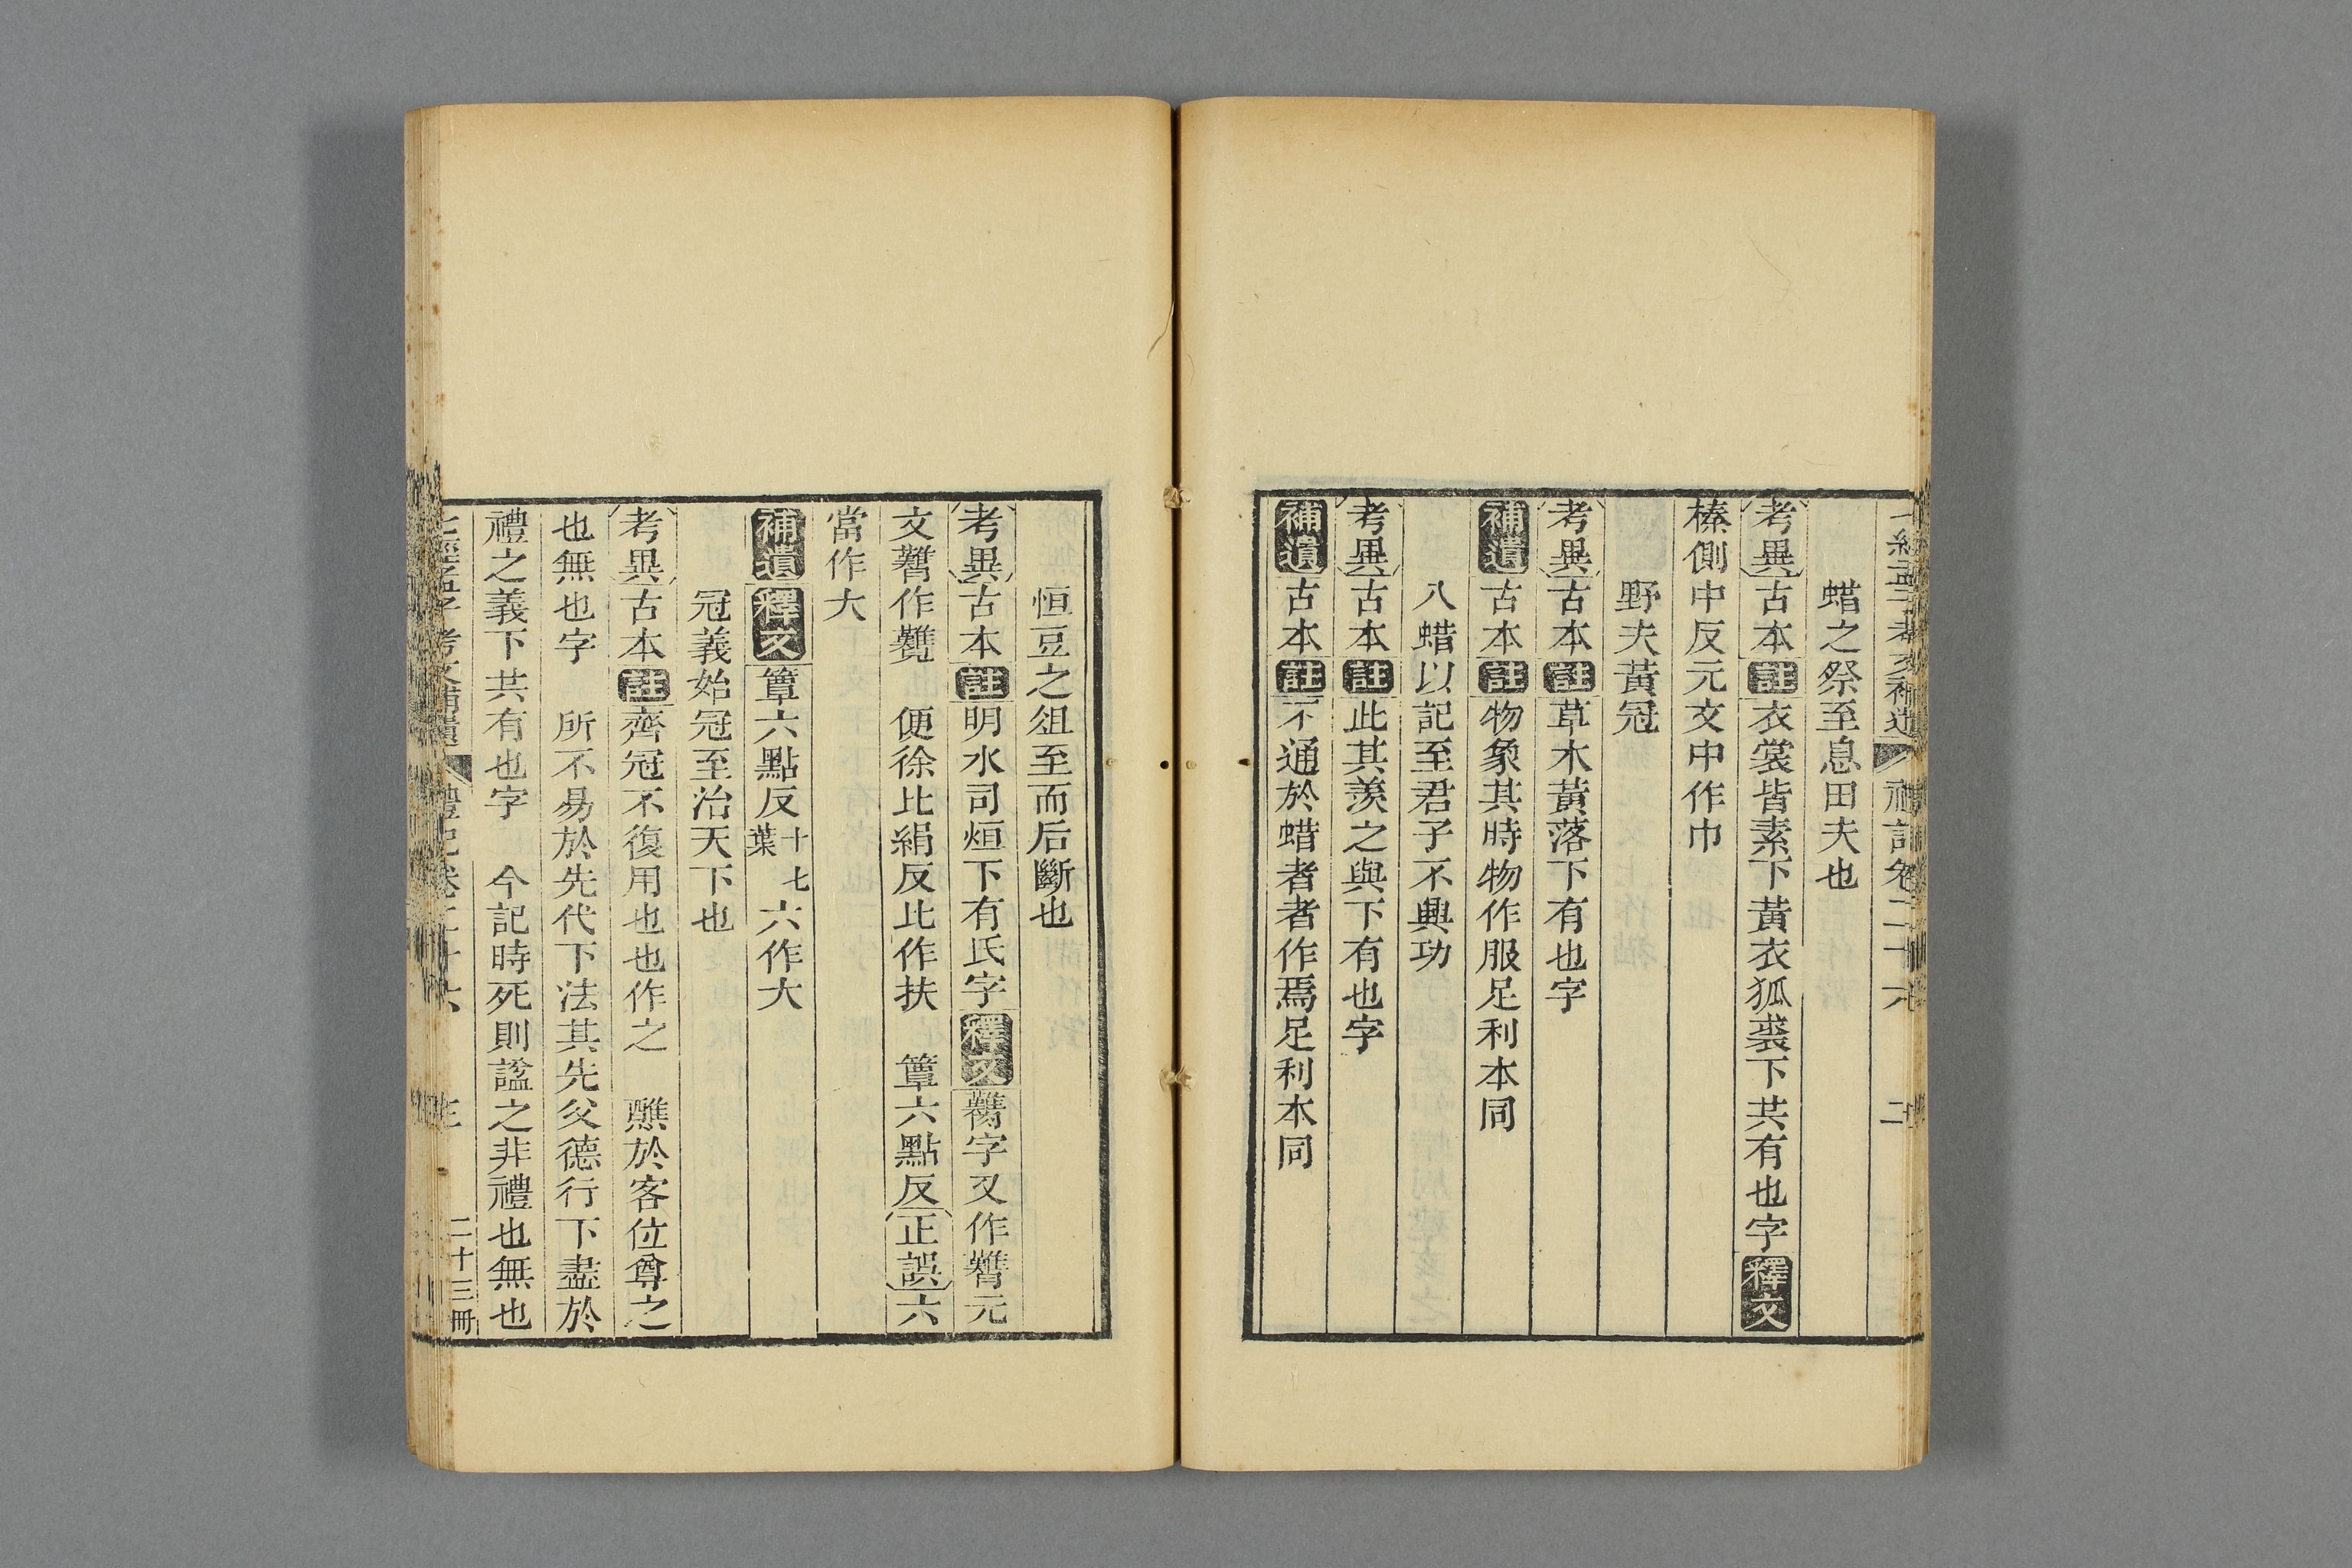 七經孟子考文補遺 禮記卷二十六 二
蜡之祭至息田夫也
考異古本註衣裳皆素下黃衣狐裘下共有也字釋文
榛側中反元文中作巾
野夫黃冠
考異古本註草木黃落下有也字
補遺古本註物象其時物作服足利本同
八蜡以記至君子不興功
考異古本註此其羨之與下有也字
補遺古本註不通於蜡者者作焉足利本同
恒豆之俎至而后斷也
考異古本註明水司烜下有氏字釋文
字又作虀元
文虀作
便徐比絹反比作扶 簟六點反正誤六
當作大
補遺釋文簟六點反十七葉六作大
冠義始冠至治天下也
考異古本註齊冠不復用也也作之 醮於客位尊之
也無也字 所不易於先代下法其先父德行下盡於
禮之義下共有也字 今記時死則諡之非禮也無也
七經孟子考文補遺 禮記卷二十六 三 二十三冊